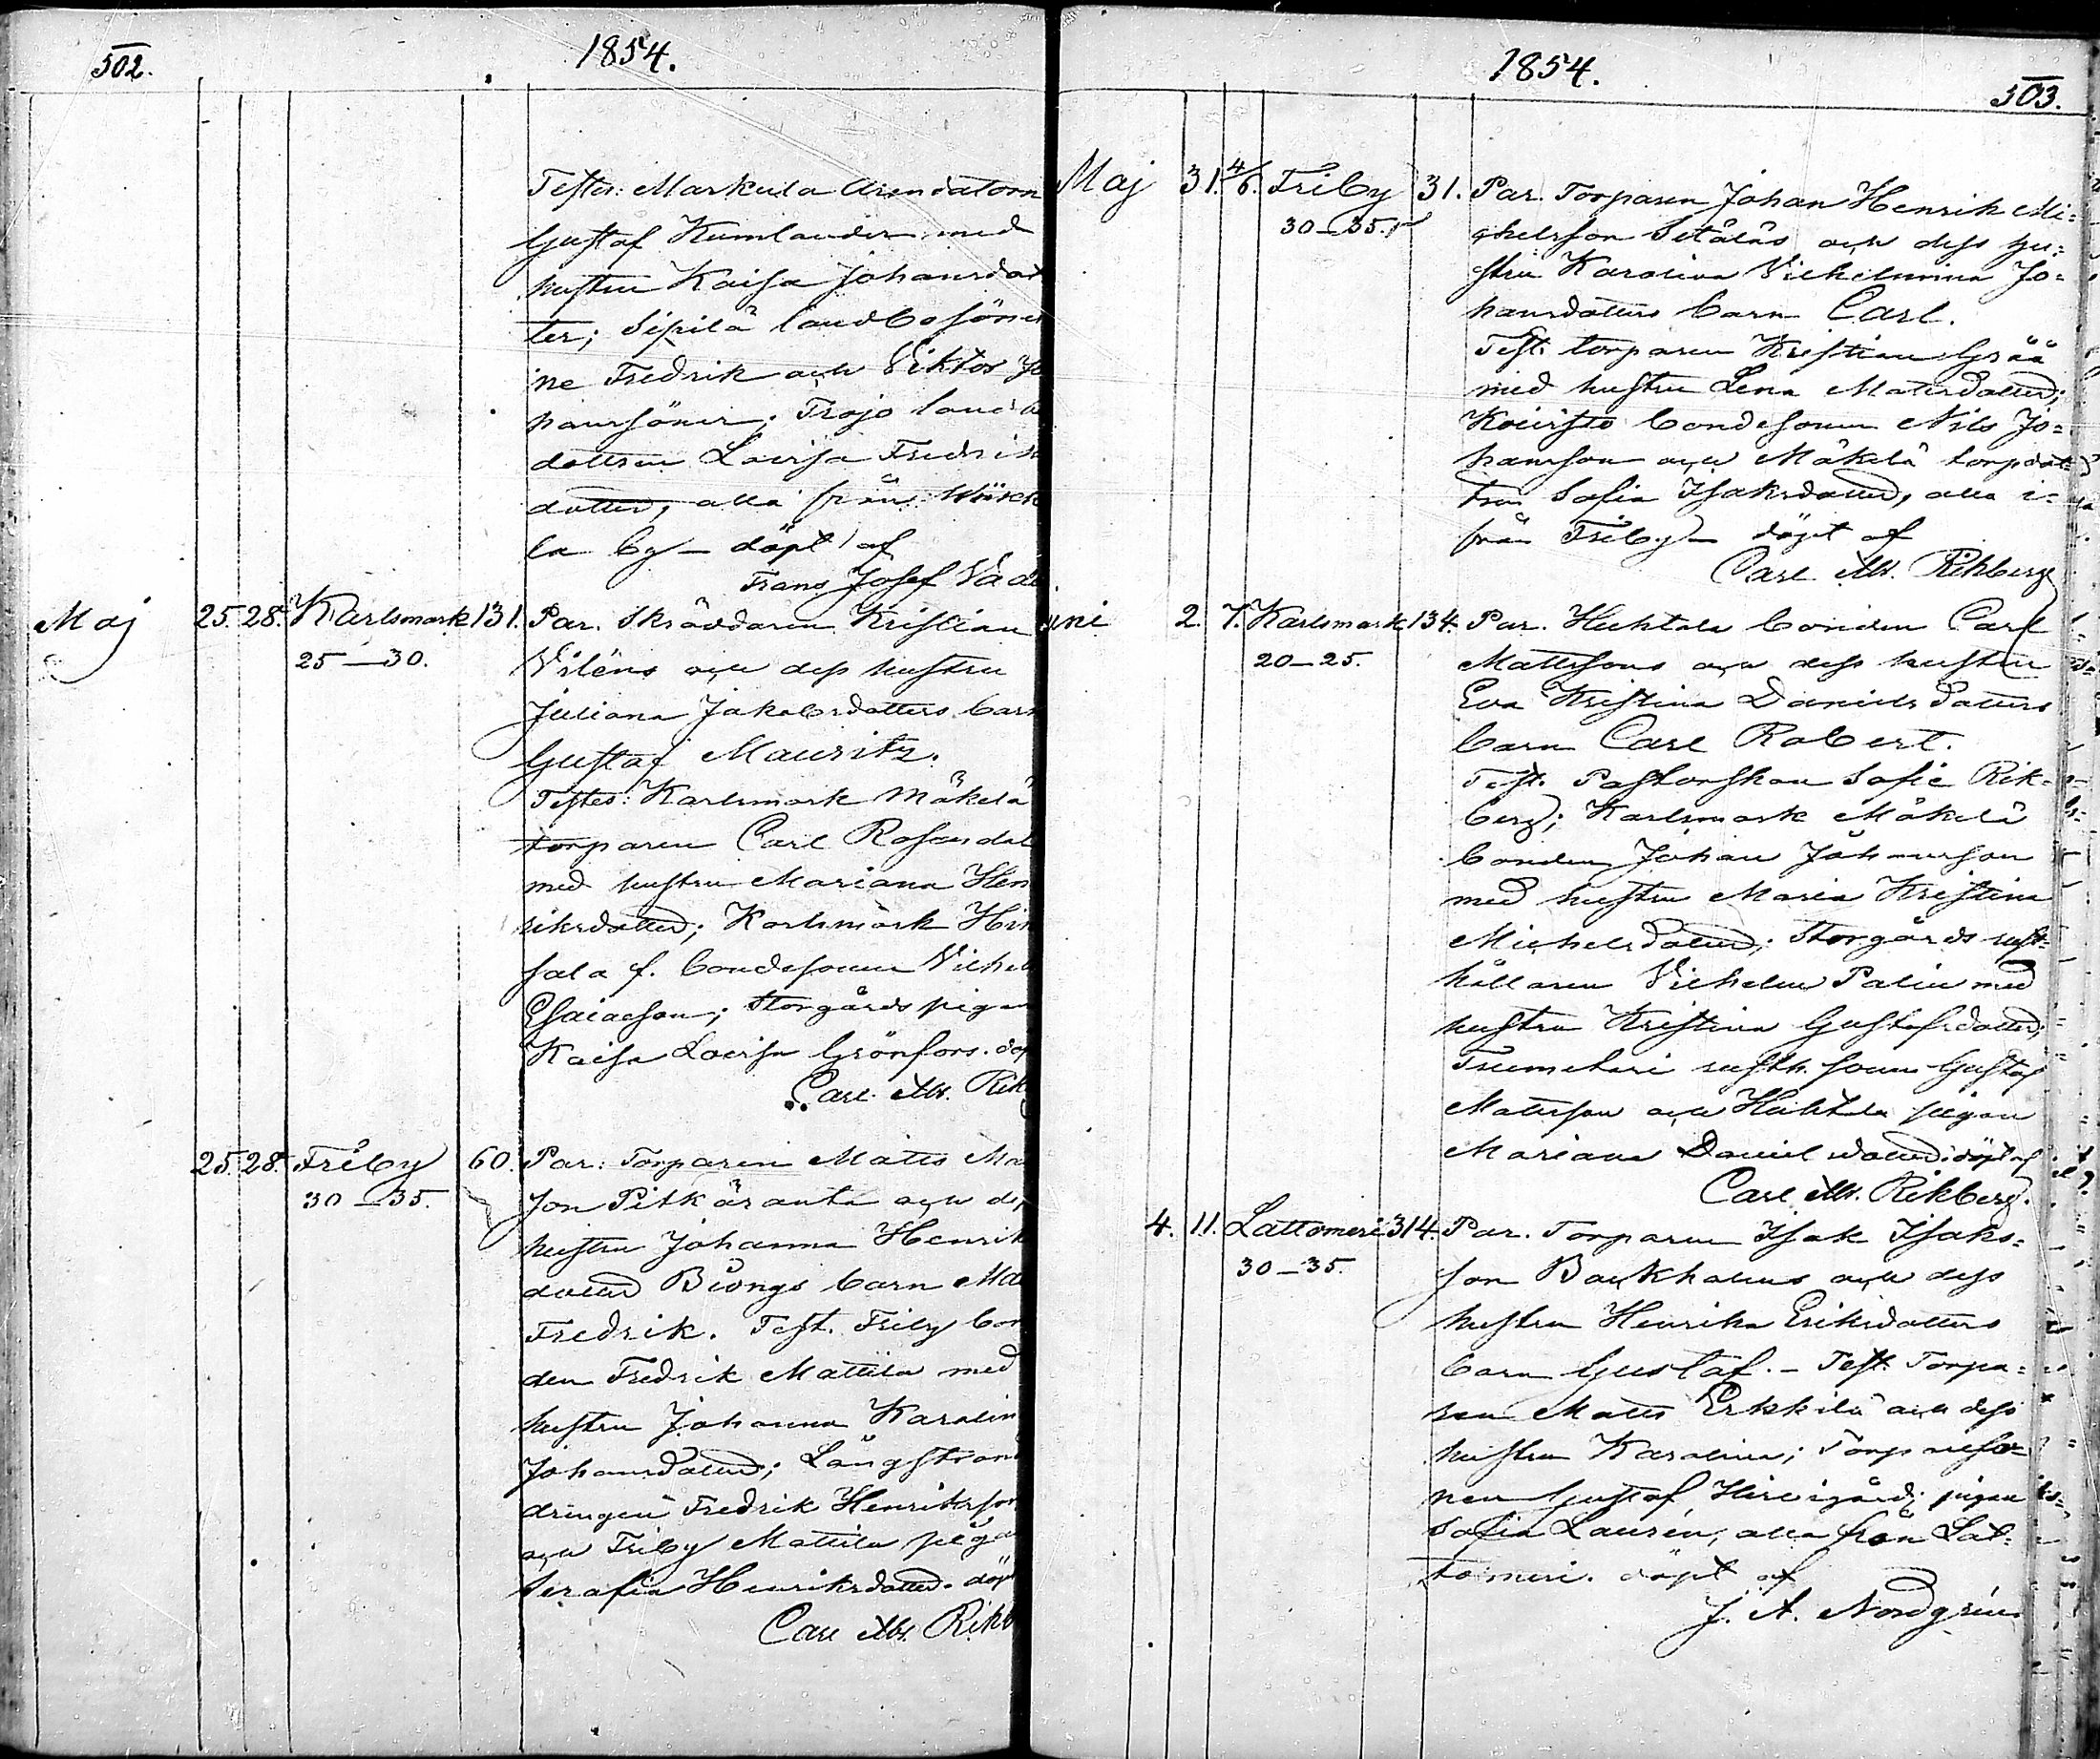 502.
1854.
Testes: Markula Arendatorn
Gustaf Kumlander med
hustru Kaisa Johansdot
ter; Sipilä landbosöner
ne Fredrik och Viktor Jo
hanssöner; Trojo landbo
dottren Lovisa Fredriks
dotter, alla från
la by – döpt af
Frans Josef Vad
Maj 25. 28. Karlsmark 131. Par. Skräddaren Kristian
25–30. Viléns och dess hustru
Juliana Jakobsdotters barn
Gustaf Mauritz.
Testes: Karlsmark Mäkelä
torparen Carl Rosendal
med hustru Mariana Hen
riksdotter; Karlsmark Hin
sala f. bondesonen Vilhel
Esaiasson; Storgårds pigan
Kaisa Lovisa Grönfors. döp
Carl Ab. Rik
25. 28. Friby 60. Par: Torparen Matts Ma
30–35. son Pitkäranta och de
hustru Johanna Henrik
dotter Böngs barn Ma
Fredrik. Test. Friby bon
den Fredrik Mattila med
hustru Johanna Karolin
Johansdotter; Långstrand
drängen Fredrik Henriksson
och Friby Mattila pigan
Serafia Henriksdotter. döpt
Carl Ab. Rikb
1854.
503.
Maj 31. 4/6. Friby 31. Par. Torparen Johan Henrik Mi=
30–35. chelsson Setäläs och dess hu=
stru Karolina Vilhelmina Jo=
hansdotters barn Carl.
Test. torparen Kristian Grää
med hustru Lena Matsdotter;
Koivisto bondesonen Nils Jo=
hansson och Mäkelä torpdot=
tren Sofia Isaksdotter, alla i=
från Friby – döpt af
Carl Ab. Rikberg
uni 2. 7. Karlsmark 134. Par. Huhtala bonden Carl
20–25. Mattssons och dess hustru
Eva Kristina Danielsdotters
barn Carl Robert.
Test. Pastorskan Sofie Rik=
berg; Karlsmark Mäkelä
bonden Johan Johansson
med hustru Maria Kristina
Michelsdotter; Storgårds rust=
hållaren Vilhelm Palin med
hustru Kristina Gustafsdotter;
rusth. sonen Gustaf
Mattsson och Huhtala pigan
Mariana Danielsdotter. döpt af
Carl Ab. Rikberg.
4. 11. Lattomeri 314. Par. Torparen Isak Isaks=
30–35. son Backholms och dess
hustru Henrika Eriksdotters
barn Gustaf. – Test. Torpa=
ren Matts Erkkilä och dess
hustru Karolina; Torpareso=
nen Gustaf Hirvigård; pigan
Sofia Laurén, alla från Lat=
tomeri. döpt af
J. A. Nordgrén